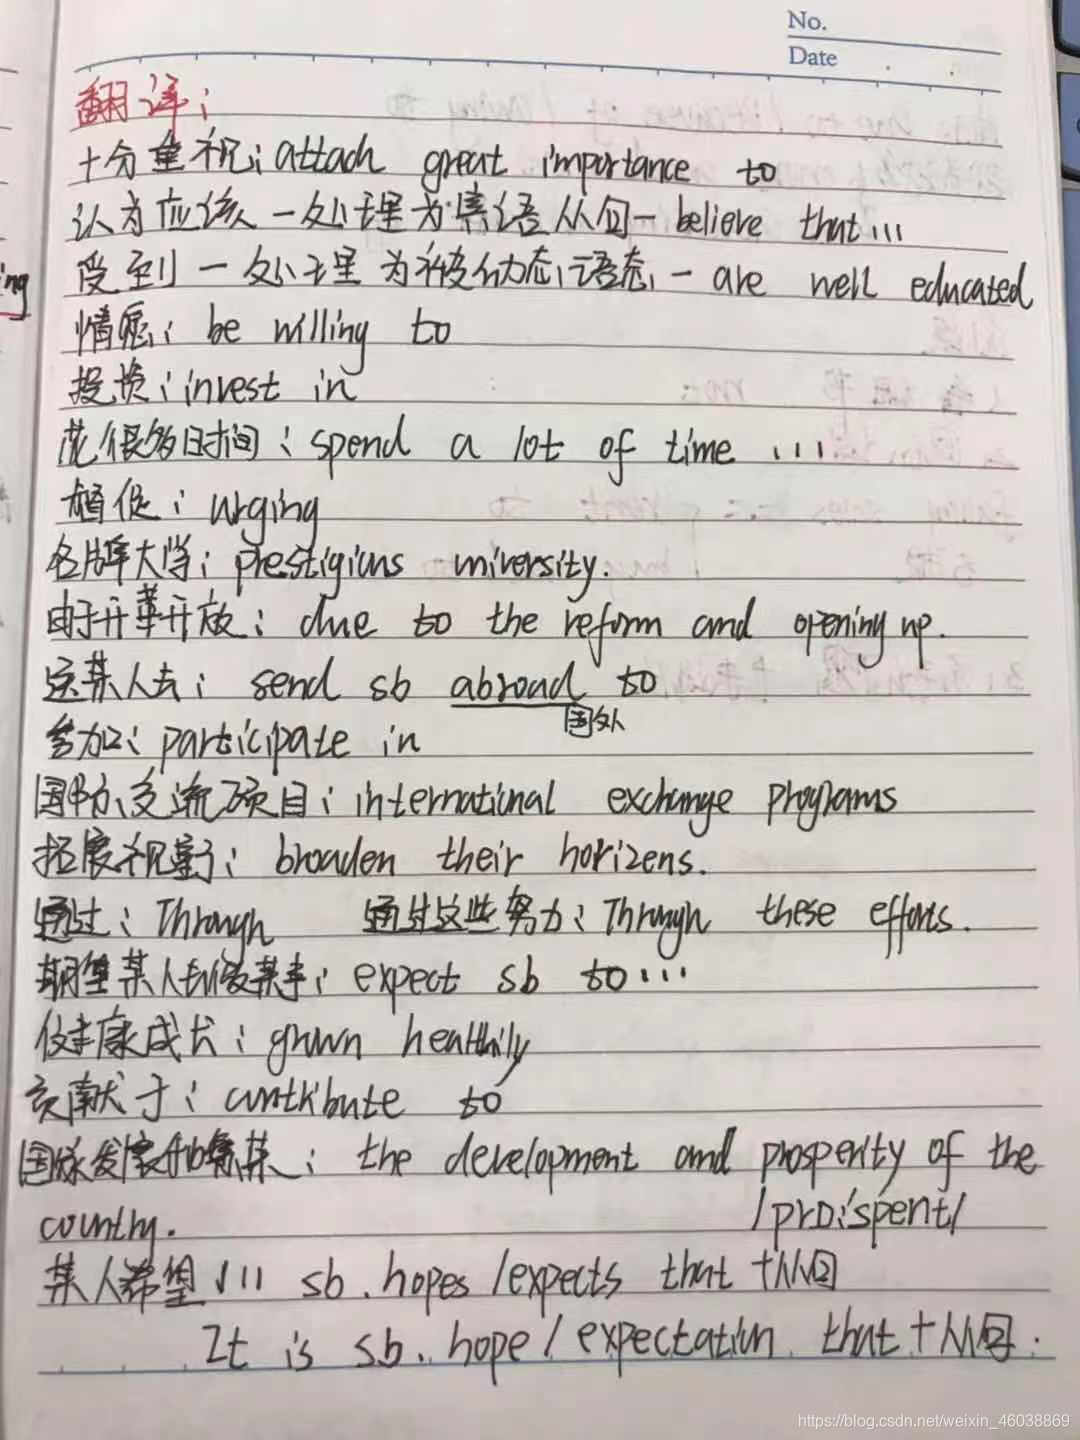 No.
Date
翻译：
十分重视：attach great importance to
认为应该 — 处理为宾语从句 — believe that...
受到 — 处理为被动态语态 — are well educated
情愿：be willing to
投资：invest in
花很多时间：spend a lot of time ...
督促：urging
ing
名牌大学：prestigious university.
由于开革开放：due to the reform and opening up.
送某人去：send sb abroad to
国外
参加：participate in
国际交流项目：international exchange programs
拓展视野：broaden their horizens.
通过：Through 通过这些努力：Through these efforts.
期望某人去做某事：expect sb to...
健康成长：grown healthily
贡献于：contribute to
国家发展和繁荣：the development and prosperity of the
country. /prɒ'sperɪt/
某人希望 ... sb. hopes / expects that +从句
It is sb. hope / expectation that +从句.
https://blog.csdn.net/weixin_46038869